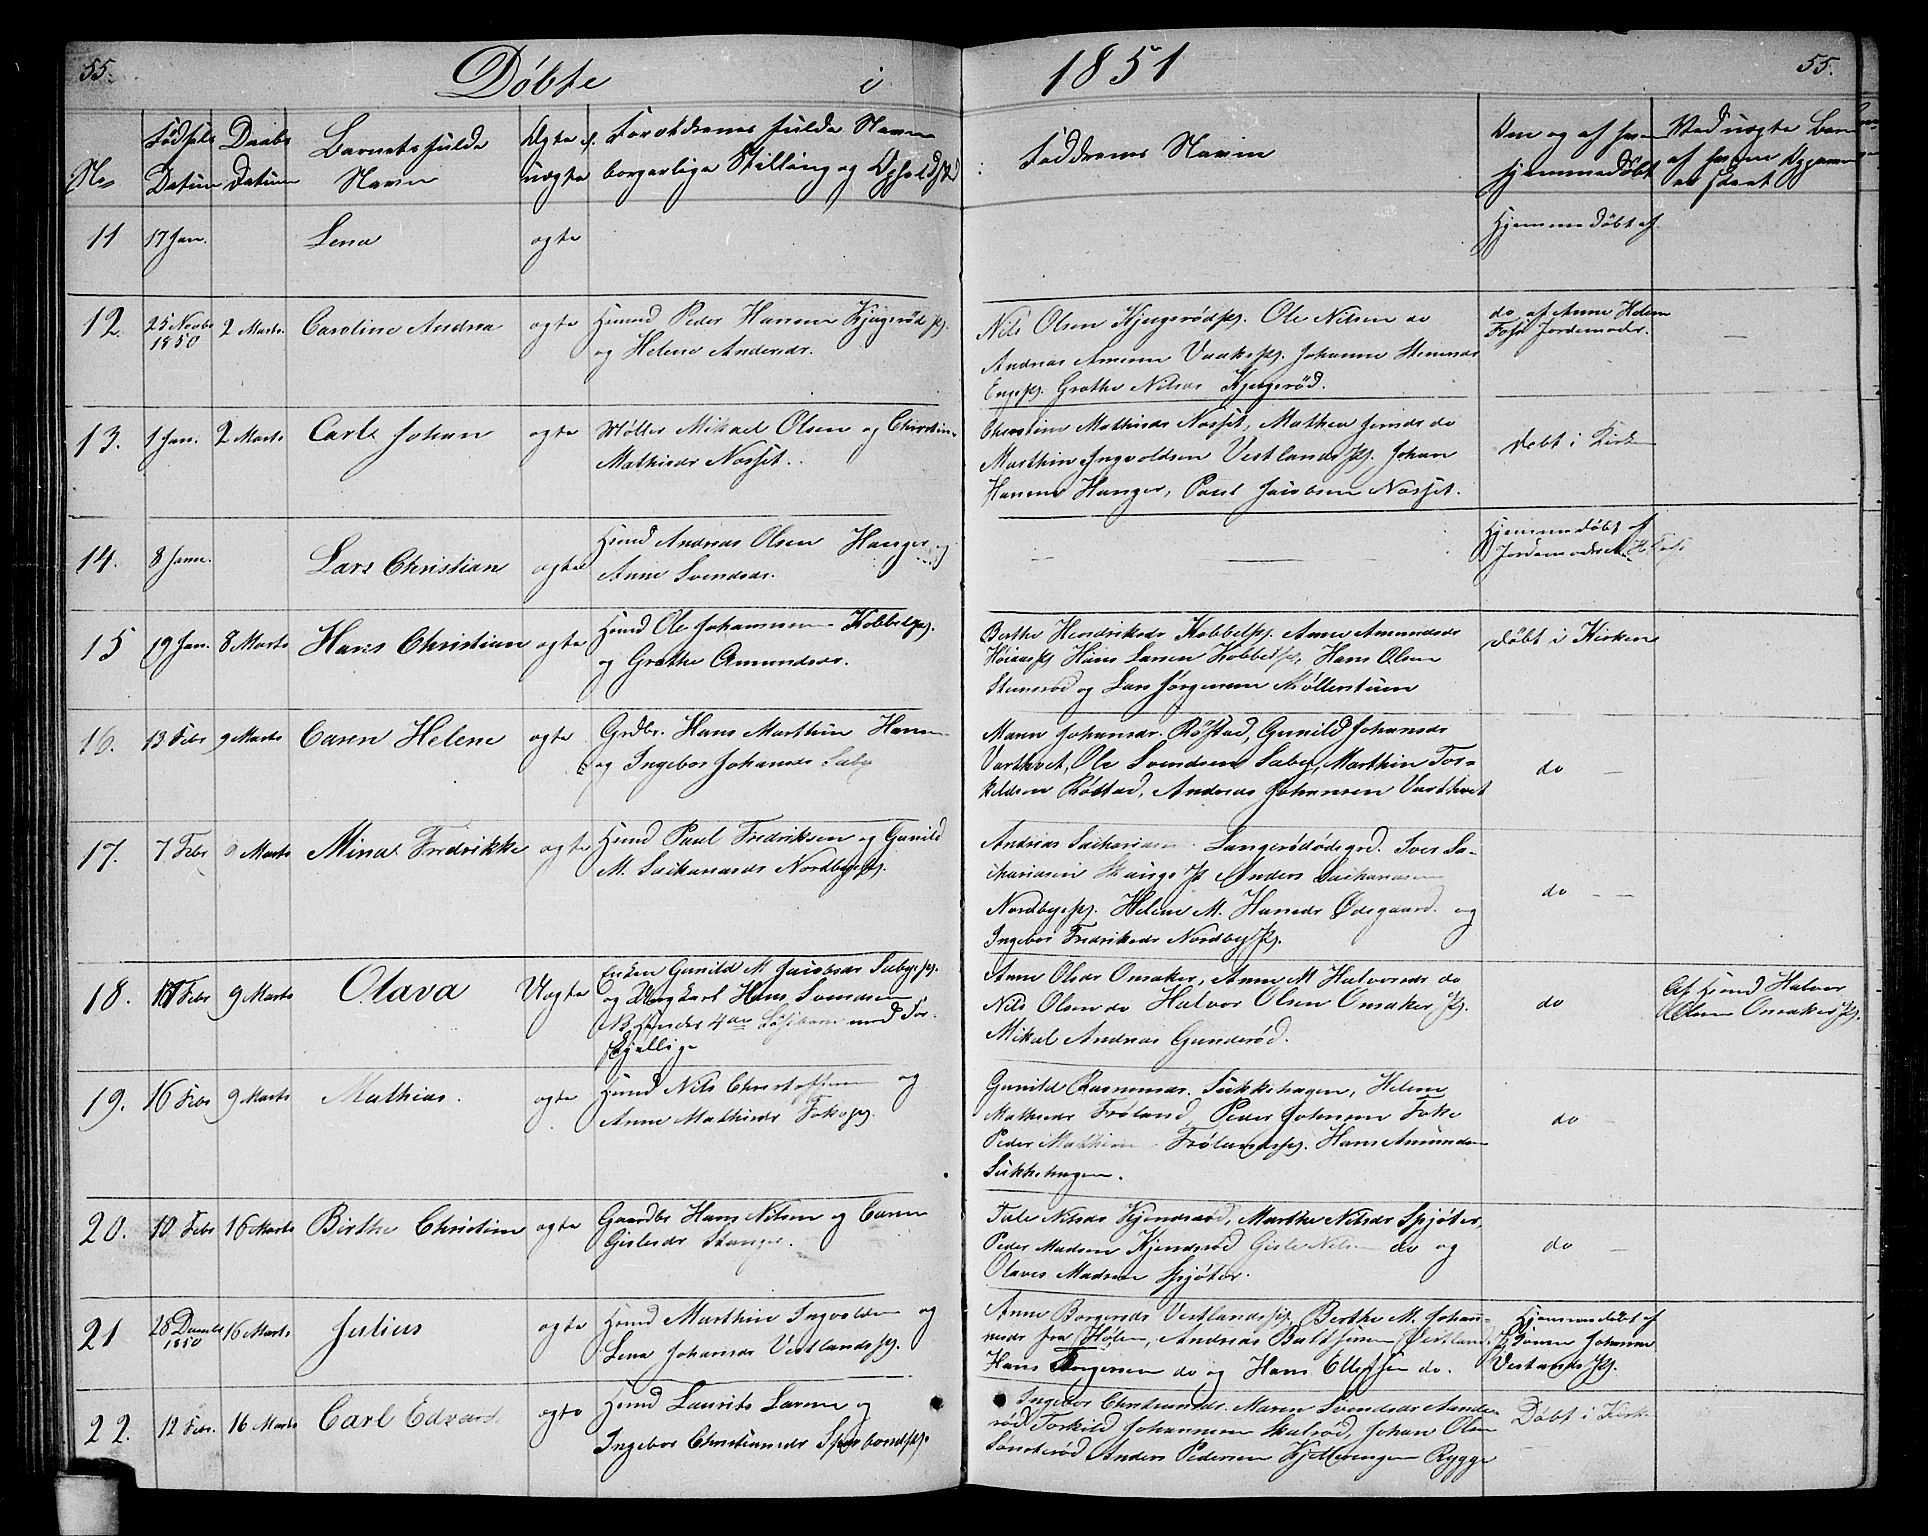 55.
Døbte i 1851
55.
No
Fødsels Datum
Daabs Datum
Barnets fulde Navn
Ægte el. uægte
Forældrenes fulde Navn borgerlige Stilling og Opholdsted
Faddernes Navne
Naar og af hvem hjemmedøbt
Ved uægte Børn af hvem
11
17 Jan.
Lena
ægte
Hjemmedøbt af
12.
25 Novbr 1850
2 Marts.
Caroline Andrea
ægte
Husmd Peder Hansen
og Helene Andersdr.
Nils Olsen Ole Nilsen do
Andreas Johanne
Engepl. Grethe Nilsdr
do af Anne Helene
Jordemoder.
13.
1 Jan.
2 Marts
Carl Johan
ægte
Møller Mikael Olsen og Christine
Mathisdr Nosset.
Christine Mathisdr Nosset, Mathea Jensdr do
Marthin Ingvoldsen Vestlandspl. Johan
Hansen Hanger, Paul Jacobsen Nosset.
Døbt i Kirken
14.
8 Janr.
Lars Christian
ægte
Husmd Andreas Olsen Hanger og
Anne Svendsdr.
Hjemmedøbt af
Jordemoder
15
19 Jan.
8 Marts
Hans Christian
ægte
Husmd Ole Johannesen Kobbelpl.
og Grethe Amundsdr.
Berthe Hendriksdr Kobbelpl. Anne Amundsdr
Hans Larsen Kobbelpl, Hans Olsen
Stensrød og Lars Jørgensen Møllerstuen
Døbt i Kirken
16.
13 Febr
9 Marts
Caren Helene
ægte
Grdbr. Hans Marthin Hansen
og Ingebor Johansdr Saby
Maren Johansdr. Røstad, Gunild Johansdr
Varthvet, Ole Svendsen Saby, Marthin Tor-
keldsen Røstad, Andreas Johansen Varthvet
do
17.
7 Febr
9 Marts
Mina Fredrikke
ægte
Husmd Paul Fredriksen og Gunild
M. Sachariasdr Nordbypl.
Andrias Sachariasen Langerødødegrd. Iver Sa-
chariasen pl Anders Sachariasen
Nordbypl. Helene M. Hansdr Ødegaard. og
Ingebor Fredriksdr Nordbypl.
do
18.
Febr
9 Marts
Olava
Uægte
Enken Gunild M Jacobsdr Sabypl.
og Ungkarl Hans Svendsen
NB hendes 4de Løsebarn med For-
skjellige
Anne Olsdr Onsaker, Anne M Halvorsdr do
Nils Olsen do Halvor Olsen Onsaker pl.
Mikal Andreas Gunderød.
do
Af Husmd Halvor
Olsen Onsaker pl.
19.
16 Febr
9 Marts
Mathias.
ægte
Husmd Nils Christoffersen og
Anne Mathisdr
Gunild Rasmusdr. Sukkehagen, Helene
Mathisdr Frøland, Peder Johnsen
Peder Mathisen Frølandspl. Hans Amundsen
Sukkehagen.
do
20.
10 Febr
16 Marts
Birthe Christine
ægte
Gaardbr Hans Nilsen og Caren
Gislesdr Stanger.
Tale Nilsdr Kjendsrød, Marthe Nilsdr Spjøter,
Peder Madsen Kjendsrød Gisle Nilsen do og
Olaves Madsen Spjøter.
do
21
28 Decmbr 1850
16 Marts
Julius
ægte
Husmd Marthin Ingvoldsen og
Lena Johansdr Vestlandspl.
Anne Borgersdr Vestlandspl, Berthe M. Johan-
nesdr fra Hølen, Andreas Baltsersen Vestland.
Hans Borgersen do og Hans Ellefsen do.
Hjemmedøbt af
Johanne
Vestlandspl.
22.
12 Febr.
16 Marts
Carl Edvard
ægte
Husmd Laurits Larsen og
Ingebor Christiansdr
Ingebor Christiansdr. Maren Svendsdr
Torkild Johannesen Skalrød, Johan Olsen
Sønsterød Anders Pedersen Rygge
Døbt i Kirken